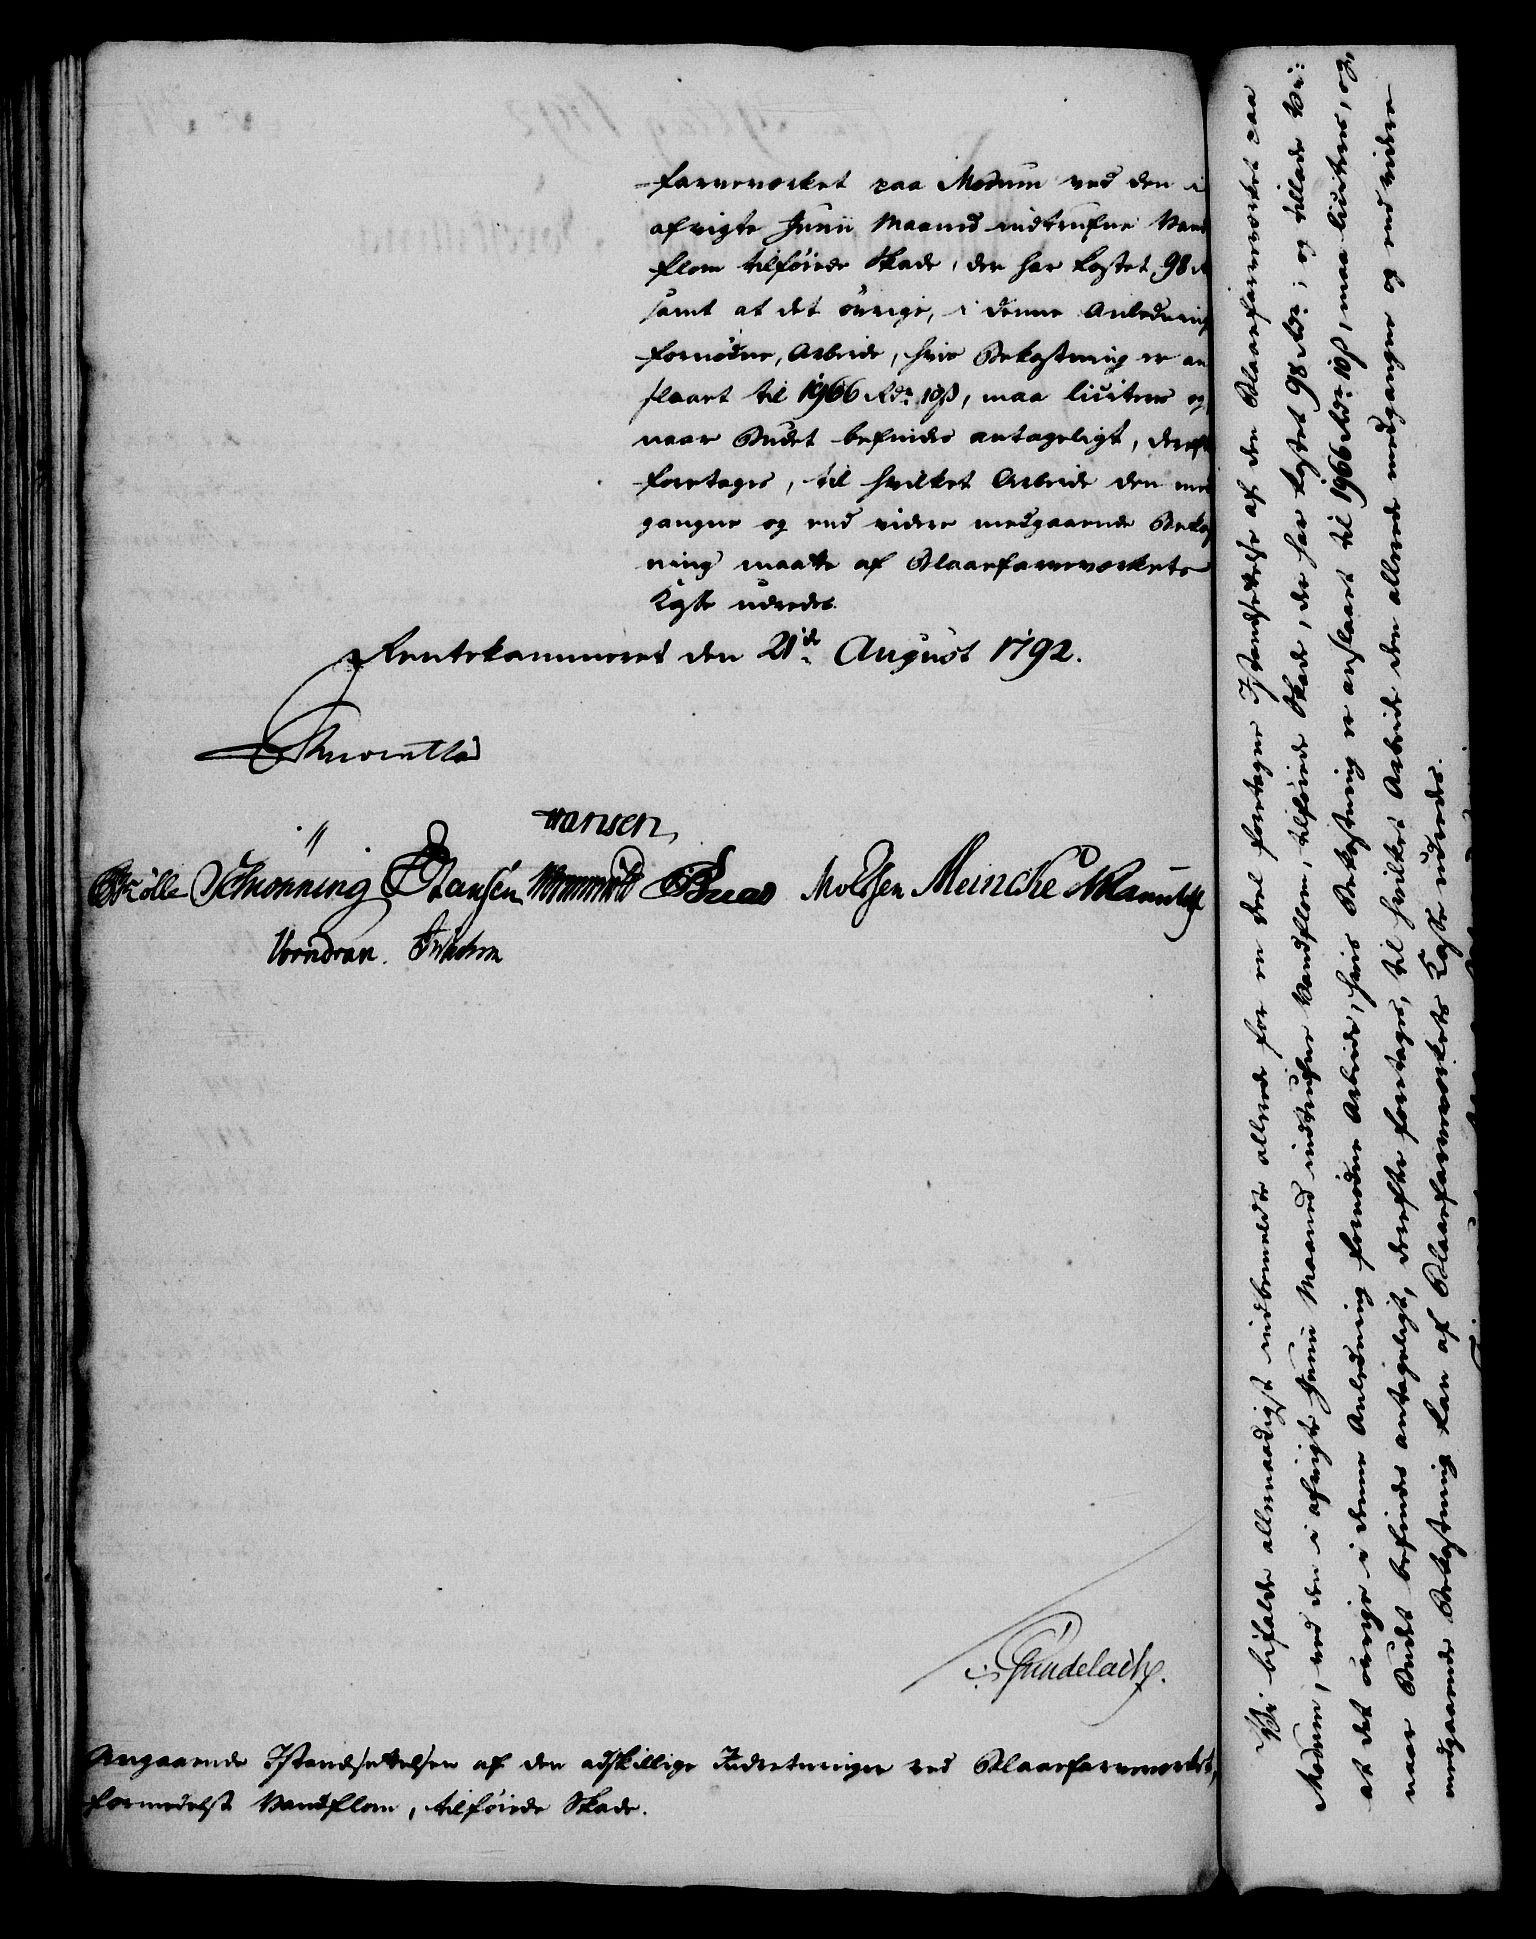 farveverket paa Modum ved den i
afvigte Junii Maaned indtrufne Vand
flom tilføiede Skade, der har kostet 98 R
samt at det øvrige, i denne Anledning
fornødne, Arbeide, hvis Bekostning er an
slaaet til 1966 Rdr 10 s, maa liciteres og,
naar Budet befindes antageligt, derefter
foretages, til hvilket Arbeide den med
gangne og end videre medgaaende Bekost
ning maatte af Blaafarveverkets
Kasse udredes.
Rentekammeret den 21de August 1792.
Hansen
Schiønning Hansen Wormskiold Meincke
Vorndran.
Gundelach.
Angaaende Istandsættelsen af den adskillige Indretninger ved Blaafarveverket,
formedelst Vandflom, tilføiede Skade.
Vi bifalde allernaadigst indbemeldte allerede for en Deel foretagne Istandsættelse af den Blaafarveverket paa
Modum, ved den i afvigte Junii Maaned indtrufne Vandflom, tilføiede Skade, der har kostet 98 Rdr; og tillade Vi:
at det øvrige i denne Anledning fornødne Arbeide, hvis Bekostning er anslaaet til 1966 Rdr 10 s, maa liciteres, og,
naar Budet befindes antageligt, derefter foretages, til hvilket Arbeide den allerede medgangne og end videre
medgaaende Bekostning kan af Blaafarveverkets Kasse udredes.